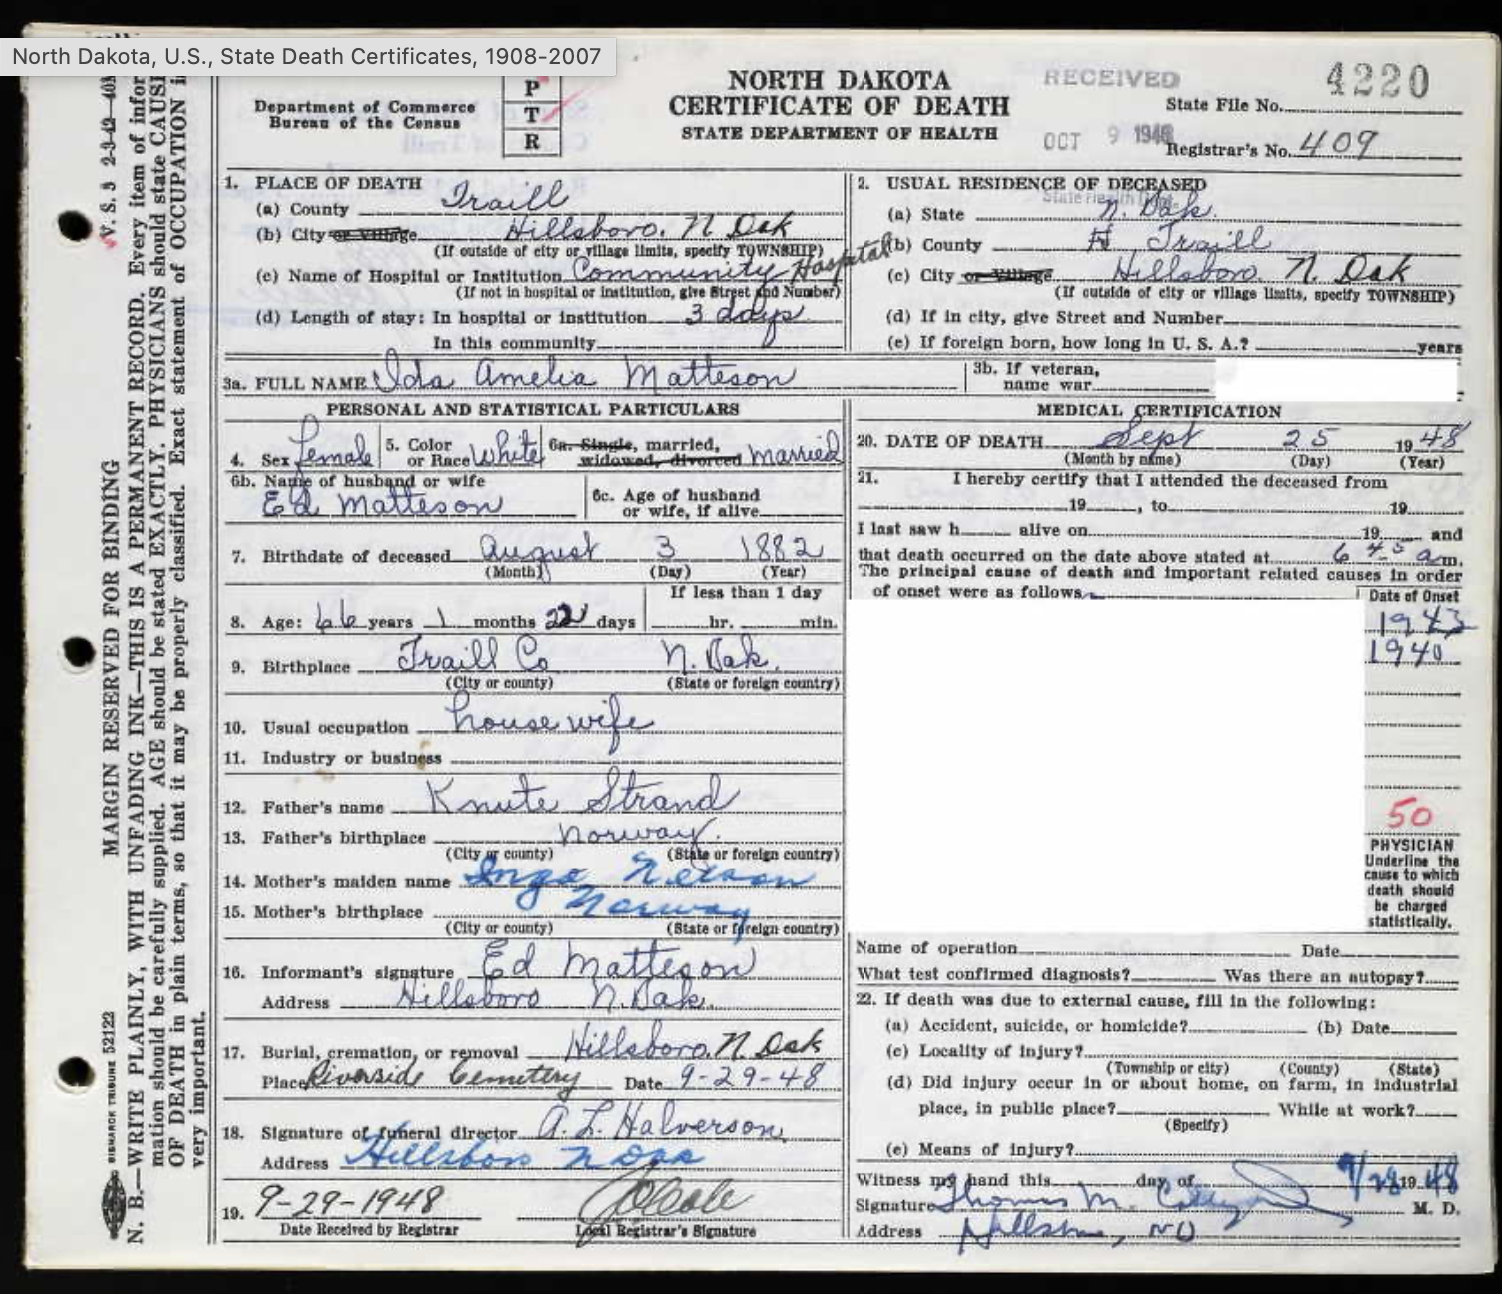 North Dakota, U.S., State Death Certificates, 1908-2007
V. S. 3 2-3-42—40M
MARGIN RESERVED FOR BINDING
BISMARCK TRIBUNE 52122
N. B.—WRITE PLAINLY, WITH UNFADING INK—THIS IS A PERMANENT RECORD. Every item of infor
mation should be carefully supplied. AGE should be stated EXACTLY. PHYSICIANS should state CAUS
OF DEATH in plain terms, so that it may be properly classified. Exact statement of OCCUPATION i
very important.
Department of Commerce
Bureau of the Census
P
T
R
NORTH DAKOTA
CERTIFICATE OF DEATH
STATE DEPARTMENT OF HEALTH
RECEIVED
OCT 9 1948
State Health Dept.
State File No. 4220
Registrar's No. 409
1. PLACE OF DEATH
(a) County Traill
(b) City or Village Hillsboro. N Dak
(If outside of city or village limits, specify TOWNSHIP)
(c) Name of Hospital or Institution Community Hospital
(If not in hospital or institution, give Street and Number)
(d) Length of stay: In hospital or institution 3 days
In this community
2. USUAL RESIDENCE OF DECEASED
(a) State N. Dak.
(b) County Traill
(c) City or Village Hillsboro. N. Dak
(If outside of city or village limits, specify TOWNSHIP)
(d) If in city, give Street and Number
(e) If foreign born, how long in U. S. A.? years
3a. FULL NAME Ida Amelia Matteson
3b. If veteran,
name war
PERSONAL AND STATISTICAL PARTICULARS
4. Sex female 5. Color or Race White 6a. Single, married, widowed, divorced Married
6b. Name of husband or wife
Ed Matteson
6c. Age of husband
or wife, if alive
7. Birthdate of deceased August 3 1882
(Month) (Day) (Year)
If less than 1 day
8. Age: 66 years 1 months 22 days hr. min.
9. Birthplace Traill Co N. Dak.
(City or county) (State or foreign country)
10. Usual occupation house wife
11. Industry or business
12. Father's name Knute Strand
13. Father's birthplace Norway.
(City or county) (State or foreign country)
14. Mother's maiden name Inga Nelson
15. Mother's birthplace Norway
(City or county) (State or foreign country)
16. Informant's signature Ed Matteson
Address Hillsboro N. Dak.
17. Burial, cremation, or removal Hillsboro. N Dak
Place Riverside Cemetery Date 9-29-48
18. Signature of funeral director A. L. Halverson
Address Hillsboro N Dak
19. 9-29-1948
Date Received by Registrar Local Registrar's Signature
MEDICAL CERTIFICATION
20. DATE OF DEATH Sept 25 1948
(Month by name) (Day) (Year)
21. I hereby certify that I attended the deceased from
19 , to 19
I last saw h alive on 19 and
that death occurred on the date above stated at 6 45 am.
The principal cause of death and important related causes in order
of onset were as follows
Date of Onset
1943
1940
50
PHYSICIAN
Underline the
cause to which
death should
be charged
statistically.
Name of operation Date
What test confirmed diagnosis? Was there an autopsy?
22. If death was due to external cause, fill in the following:
(a) Accident, suicide, or homicide? (b) Date
(c) Locality of injury?
(Township or city) (County) (State)
(d) Did injury occur in or about home, on farm, in industrial
place, in public place? While at work?
(Specify)
(e) Means of injury?
Witness my hand this day of 9/28 1948
Signature Thomas M. M. D.
Address Hillsboro, ND